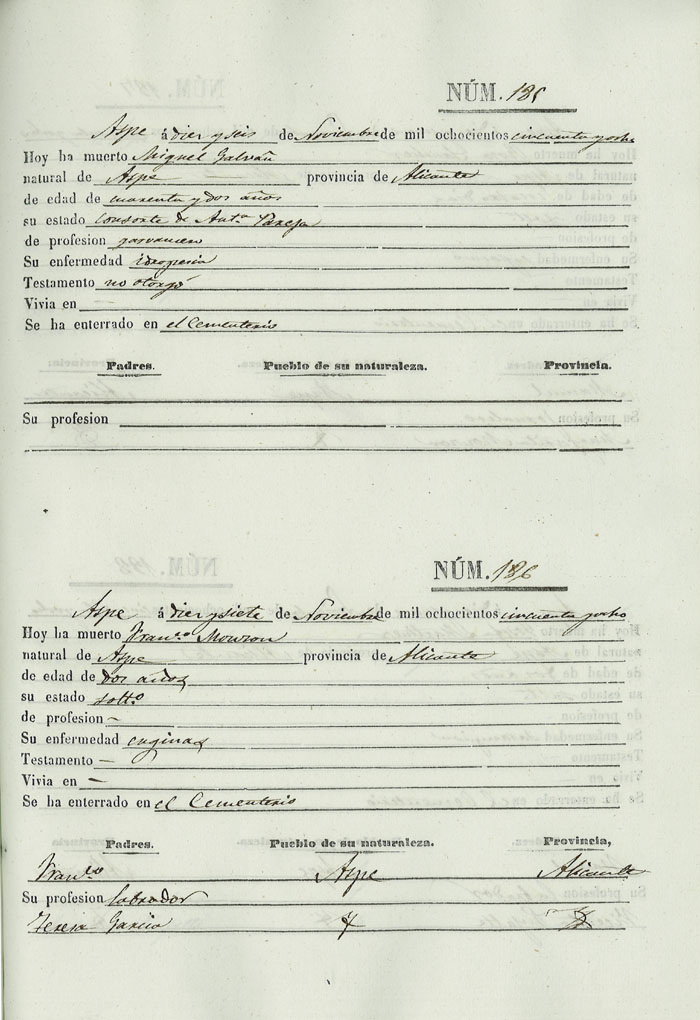 NÚM. 185
Aspe á diez y seis de Noviembre de mil ochocientos cincuenta y ocho
Hoy ha muerto Miguel Galván
natural de Aspe provincia de Alicante
de edad de cuarenta y dos años
su estado consorte de Ant.ª Pareja
de profesion
Su enfermedad
Testamento no otorgó
Vivia en
Se ha enterrado en el Cementerio
Padres. Pueblo de su naturaleza. Provincia.
Su profesion
NÚM. 186
Aspe á diez y siete de Noviembre de mil ochocientos cincuenta y ocho
Hoy ha muerto Fran.co Monzon
natural de Aspe provincia de Alicante
de edad de dos años
su estado solt.o
de profesion -
Su enfermedad anginas
Testamento -
Vivia en -
Se ha enterrado en el Cementerio
Padres. Pueblo de su naturaleza. Provincia,
Fran.co Aspe Alicante
Su profesion labrador
Teresa Garcia